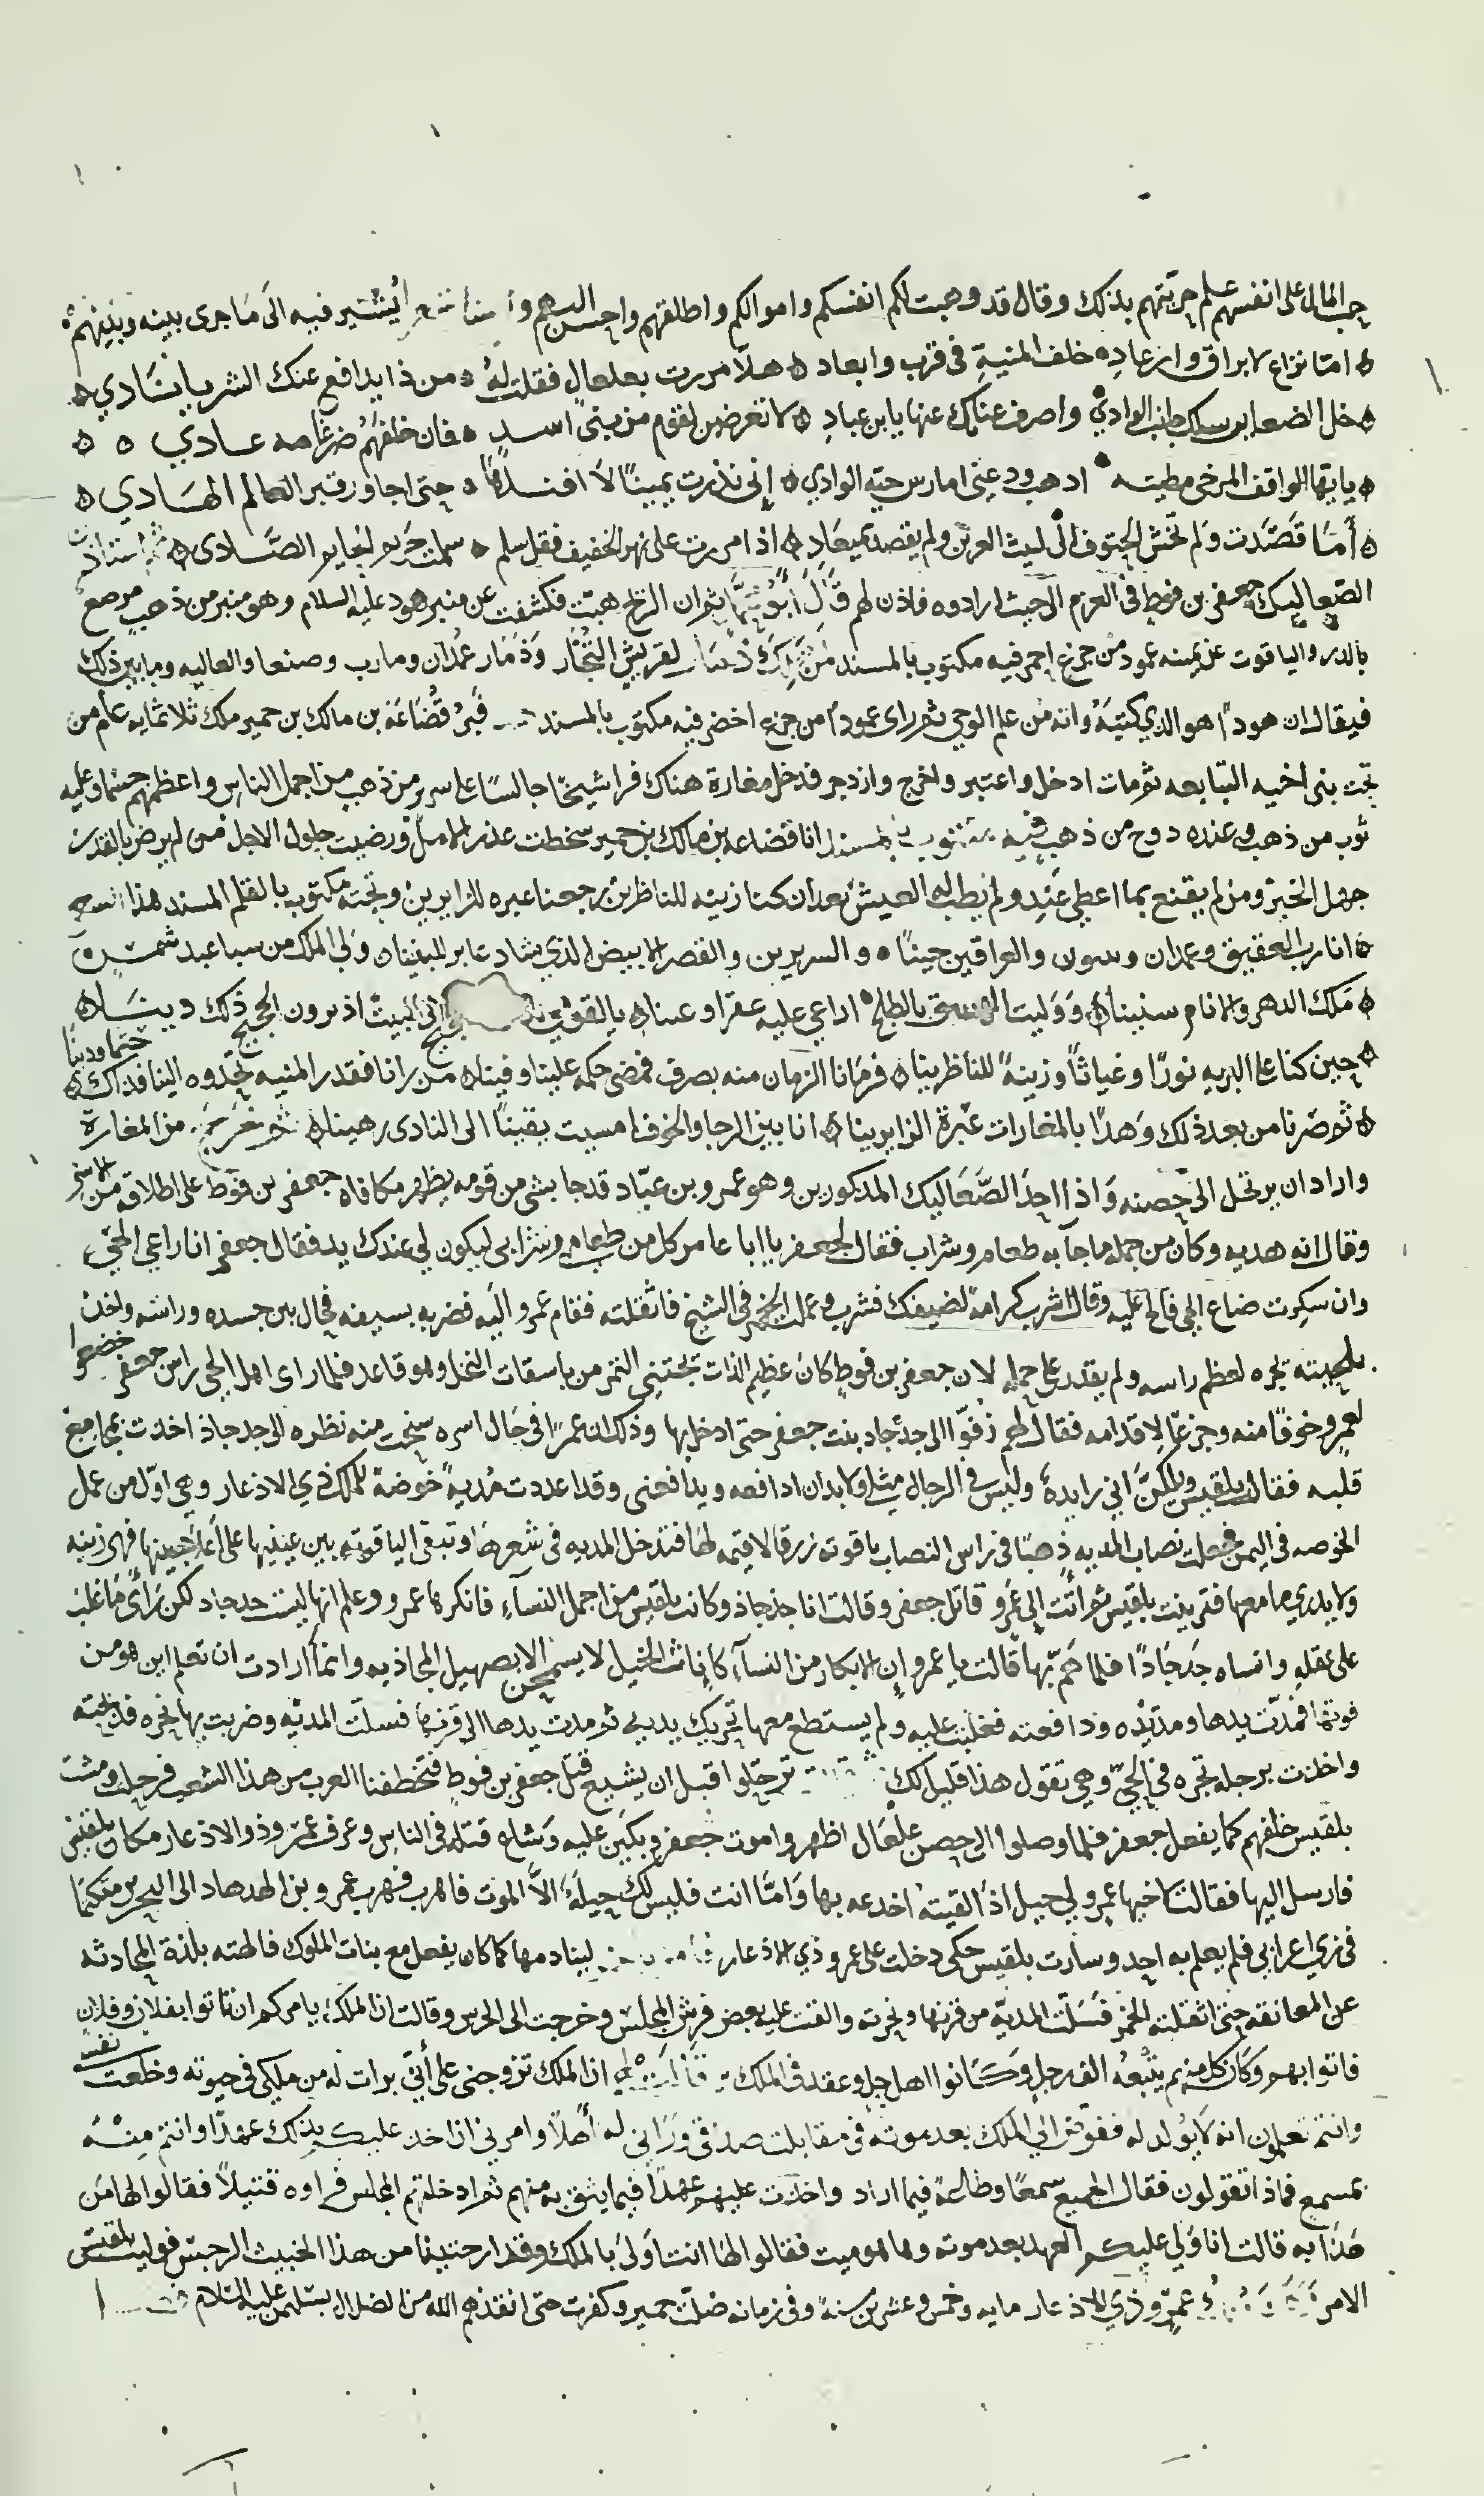 المال على انفسهم علم حريتهم بذلك وقال قد وهبت لكم انفسكم واموالكم واطلقهم واحسن اليهم يشير فيه الى ما جرى بينه وبينهم
اما نزاع لابراق وارعاد خلف المنية فى قرب وابعاد هلا مررت بعلعال فقلت له من ذا يدافع عنك الشر يا نادي
واصرف عنانك عنها يا بن عباد لا تعرضن لقوم من بنى اسد فان خلفهم ضرغامه عادي
يا يها الواقف المرخى مطيته اذهب ودعنى امارس حية الوادي انى نذرت يمينا لا افندها حتى اجاور قبر العالم الهادي
أما قصدت ولم تخش الحتوف الى ليث العرين ولم يقصد بميعاد اذا مررت على نهر الخفيف فقل اسلم الصادى
الصعاليك جعفر بن قرط فى العزم الى حيث ارادوه فاذن لهم قال ثم ان الريح هبت فكشفت عن منبر هود عليه السلام وهو منبر من ذهب مرصع
بالدر والياقوت عن يمينه عمود من جزع احمر فيه مكتوب بالمسند لقريش التجار وذمار غمدان ومارب وصنعا والعاليه وما بين ذلك
فيقال ان هودا هو الذي كتبه وانه من علم الوحي ثم راى عمودا من جزع اخضر فيه مكتوب بالمسند قبر قضاعة بن مالك بن حمير ملك ثلاثمايه عام من
تحت بنى اخيه التبابعه ثم مات ادخل واعتبر واخرج وازدجر فدخل مغارة هناك فراى شيخا جالسا على سرير من ذهب من اجمل الناس واعظمهم جسما وعليه
ثوب من ذهب وعنده لوح من ذهب فيه مكتوب بالمسند انا قضاعه بن مالك بن حمير سخطت عند الامل ورضيت حلول الاجل فمن لم يرض بالقدر
جهل الخبر ومن لم يقنع بما اعطي عند ولم يطب له العيش بعد ان كنا زينه للناظرين رجعنا عبره للزايرين وتحته مكتوب بالقلم المسند هذا
انا رب العقيق وغمدان والعراقين حينا والسريرين والقصر الابيض الذي شاد عابر المبنينا ولى الملك من سبا عبد شمس
ملك الدهر والانام سنينا ووليت بالطلح اذ يرون الحجيج ذلك دينا
حين كنا على البريه نورا وغياثا وزينة للناظرينا فرمانا الزمان منه بصرف فمضى حكمه علينا وفينا من رانا فقد راى المنيه تحدوه الينا فذاك حتما ودينا
ثم صرنا من بعد ذلك وهذا بالمغارات عبرة الزايرينا انا بين الرجا والخوف امسيت يقينا الى النادى رهينا من المغارة
واراد ان يرتحل الى حصنه واذا احد الصعاليك المذكورين وهو عمرو بن عباد قد جا بشى من قومه يظهر مكافاه جعفر بن قرط على اطلاقه من الاسر
وقال انه هديه وكان من جمله ما جا به طعام وشراب فقال لجعفر يا ابا عامر كل من طعامى وشرابى ليكون لي عندك يد فقال جعفر انا راعي الحي
وان سكرت ضاع الحي فالح عليه وقال اشرب كرامة لضيفك فشرب وعملت الخمر فى الشيخ فاثقلته فقام عمرو اليه فضربه بسيفه فحال بين جسده وراسه واخذ
بلحيته تجره لعظم راسه ولم يقدر على حمله لان جعفر بن قرط كان عظيم الذات تجتنى الثمر من باسقات النخل وهو قاعد فلما راى اهل الحي راس جعفر خضعوا
لعمرو خوفا منه وجزعا لاقدامه فقال لهم زفوا الى جدجاد بنت جعفر حتى ادخل بها وذلك ان عمرا فى حال اسره سنحت منه نظره الى جدجاد اخذت بمجامع
قلبه فقالت بلقيس ولكن انى زايده وليس فى الرجال مثلى ولا بد ان ادافعه ويدافعنى وقد اعددت مدية خوصة لملك ذي الاذعار وهي اول من عمل
الخوصه فى اليمن فجعلت نصاب المديه ذهبا فى راس النصاب ياقوته زرقا لا قيمه لها فتدخل المديه فى شعرها وتبقى الياقوته بين عينيها على اعلا جبينها فهى زينه
ولا يدري ما معها فتزينت بلقيس ثم اتت الى عمرو قاتل جعفر وقالت انا جدجاد وكانت بلقيس من اجمل النساء فانكرها عمرو وعلم انها ليست جدجاد لكن راى ما غلب
على عقله وانساه جدجادا فلما هم بها قالت يا عمرو ان الابكار من النساء كاناث الخيل لا يسمحن الا بصهيل المجاذبه وانما ارادت ان تعلم اين هو من
قوتها فمدت يدها ومد يده ودافعته فغلبت عليه ولم يستطع معها تحريك يديه ثم مدت يدها الى قرنها فسلت المديه وضربت بها نحره فذبحته
واخذت برجله تجره فى الحي وهي تقول هذا قليل لك ترحلوا قبل ان يشيع قتل جعفر بن قرط فتخطفنا العرب من هذا الشعب فرحلت ومشت
بلقيس خلفهم كما يفعل جعفر فلما وصلوا الى حصن علعال اظهروا موت جعفر وبكين عليه وشاع قتله فى الناس وعرف عمرو ذو الاذعار مكان بلقيس
فارسل اليها فقالت لاخيها عمرو لي حيل اذ القيته اخدعه بها واما انت فليس لك حيلة الا الموت فاهرب فهرب عمرو بن الهدهاد الى البحرين متنكرا
فى زي اعرابى فلم يعلم به احد وسارت بلقيس حتى دخلت على عمرو ذي الاذعار لينادمها كما كان يفعل مع بنات الملوك فالهته بلذة المحادثه
عن المعانقه حتى اثقلته الخمر فسلت المديه من قرنها ونحرته والقت عليه بعض فرش المجلس وخرجت الى الحرس وقالت ان الملك يامركم ان تاتوا بفلان وفلان
فاتوا بهم وكان كل منهم يتبعه الف رجل وكانوا اهل حل وعقد فى الملك ان الملك تزوجنى على أني برات له من ملكى فى حيوته وخلعت نفسه
وانتم تعلمون انه لا يولد له ففوض الي الملك بعد موته فى مقابلت صدقى ورانى له أهلا وامرنى ان اخذ عليكم بذلك عهدا وانتم منه
بمسمع فماذا تقولون فقال الجميع سمعا وطاعة فيما اراد واخذت عليهم عهدا فيما يثق به منهم ثم ادخلتهم المجلس فراوه قتيلا فقالوا لها من
هذا به قالت انا ولى عليكم العهد بعد موته وها هو ميت فقالوا لها انت اولى بالملك وقد ارحتينا من هذا الخبيث الرجس فوليت بلقيس
الامر عمرو ذي الاذعار مايه وخمس وعشرين سنة وفى زمانه ضلت حمير وكفرت حتى انقذهم الله من الضلال بسليمن عليه السلام